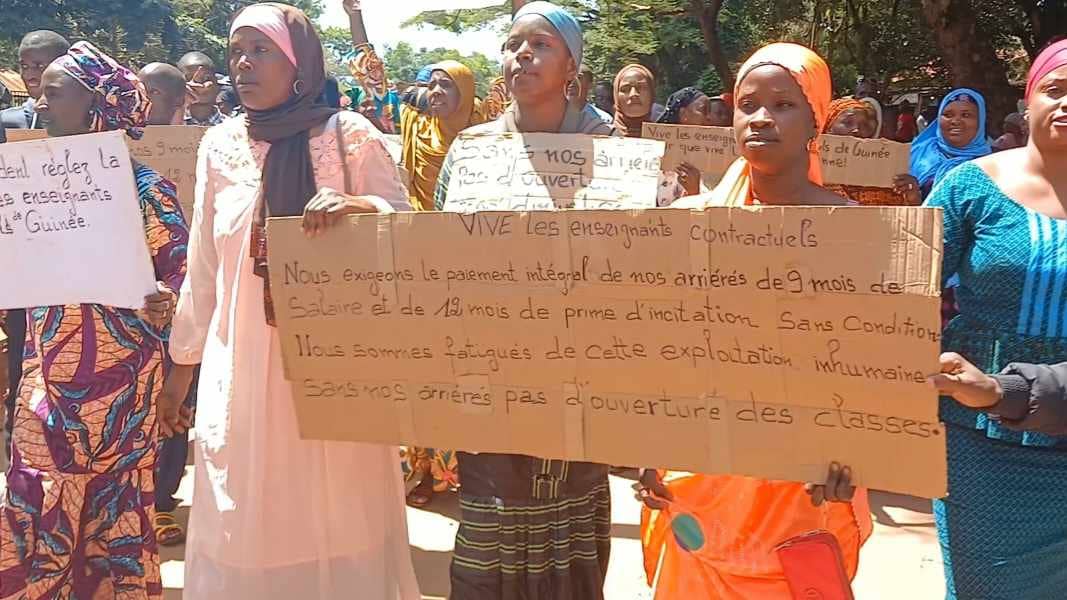 dent réglez la
es enseignants
ls de Guinée.
9 mois
Sans nos arriérés
Pas d'ouverture
que vive
ls de Guinée
VIVE les enseignants contractuels
Nous exigeons le paiement intégral de nos arriérés de 9 mois de
Salaire et de 12 mois de prime d'incitation Sans Condition
Nous sommes fatigués de cette exploitation inhumaine
Sans nos arriérés pas d'ouverture des classes.